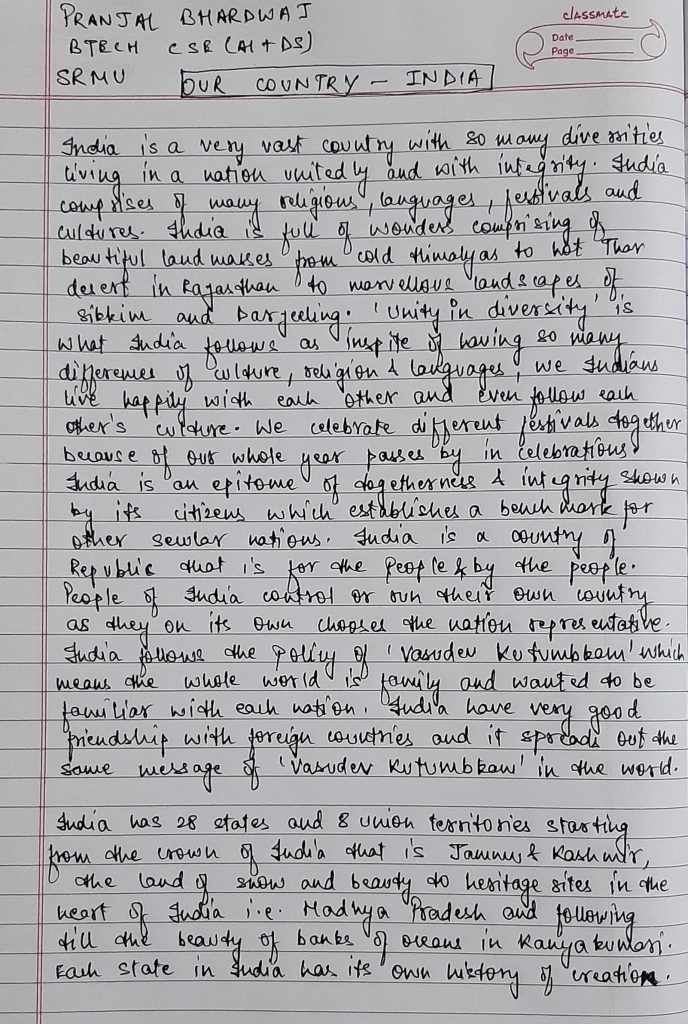 PRANJAL BHARDWAJ
BTECH CSE (AI+DS)
SRMU
OUR COUNTRY - INDIA
classmate
Date
Page
India is a very vast country with so many diversities
living in a nation unitedly and with integrity. India
comprises of many religions, languages, festivals and
cultures. India is full of wonders comprising of
beautiful landmasses from cold Himalyas to hot Thar
desert in Rajasthan to marvellous landscapes of
Sikkim and Darjeeling. 'Unity in diversity' is
what India follows as inspite of having so many
differences of culture, religion & languages, we Indians
live happily with each other and even follow each
other's culture. We celebrate different festivals together
because of our whole year passes by in celebrations.
India is an epitome of togetherness & integrity shown
by its citizens which establishes a benchmark for
other secular nations. India is a country of
Republic that is for the people & by the people.
People of India control or run their own country
as they on its own chooses the nation representative.
India follows the policy of 'Vasudev Kutumbkam' which
means the whole world is family and wanted to be
familiar with each nation. India have very good
friendship with foreign countries and it spreads out the
same message of 'Vasudev Kutumbkam' in the world.
India has 28 states and 8 union territories starting
from the crown of India that is Jammu & Kashmir,
the land of snow and beauty to heritage sites in the
heart of India i.e. Madhya Pradesh and following
till the beauty of banks of oceans in Kanyakumari.
Each state in India has its own history of creation.